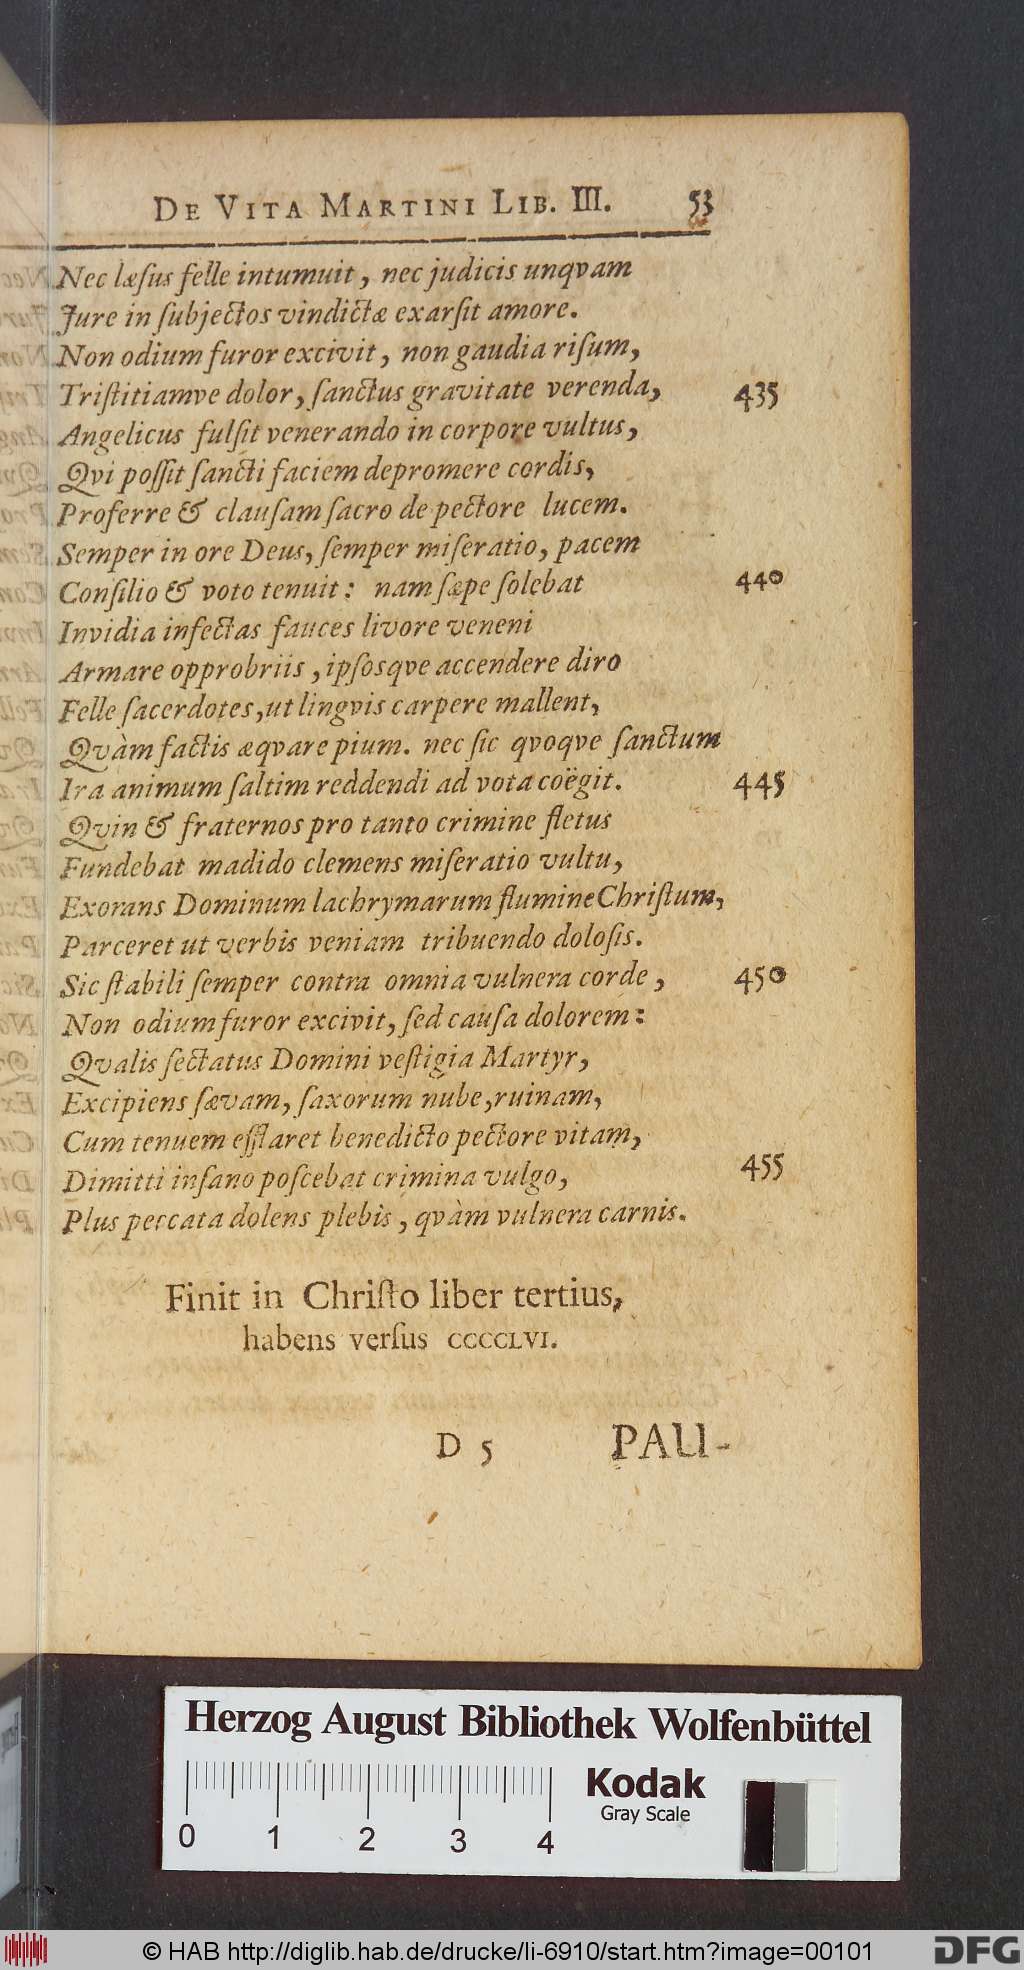 DE VITA MARTINI LIB. III. 53
Nec læſus felle intumuit, nec judicis unqvam
Jure in ſubjectos vindictæ exarſit amore.
Non odium furor excivit, non gaudia riſum,
Triſtitiamve dolor, ſanctus gravitate verenda, 435
Angelicus fulſit venerando in corpore vultus,
Qvi poſſit ſancti faciem depromere cordis,
Proferre & clauſam ſacro de pectore lucem.
Semper in ore Deus, ſemper miſeratio, pacem
Conſilio & voto tenuit: nam ſæpe ſolebat 440
Invidia infectas fauces livore veneni
Armare opprobriis, ipſosqve accendere diro
Felle ſacerdotes, ut lingvis carpere mallent,
Qvàm factis æqvare pium. nec ſic qvoqve ſanctum
Ira animum ſaltim reddendi ad vota coëgit. 445
Qvin & fraternos pro tanto crimine fletus
Fundebat madido clemens miſeratio vultu,
Exorans Dominum lachrymarum flumine Chriſtum,
Parceret ut verbis veniam tribuendo doloſis.
Sic ſtabili ſemper contra omnia vulnera corde, 450
Non odium furor excivit, ſed cauſa dolorem:
Qvalis ſectatus Domini veſtigia Martyr,
Excipiens ſævam, ſaxorum nube, ruinam,
Cum tenuem efflaret benedicto pectore vitam,
Dimitti inſano poſcebat crimina vulgo, 455
Plus peccata dolens plebis, qvàm vulnera carnis.
Finit in Chriſto liber tertius,
habens verſus CCCCLVI.
D 5 PAU-
Herzog August Bibliothek Wolfenbüttel
Kodak
Gray Scale
0 1 2 3 4
© HAB http://diglib.hab.de/drucke/li-6910/start.htm?image=00101
DFG